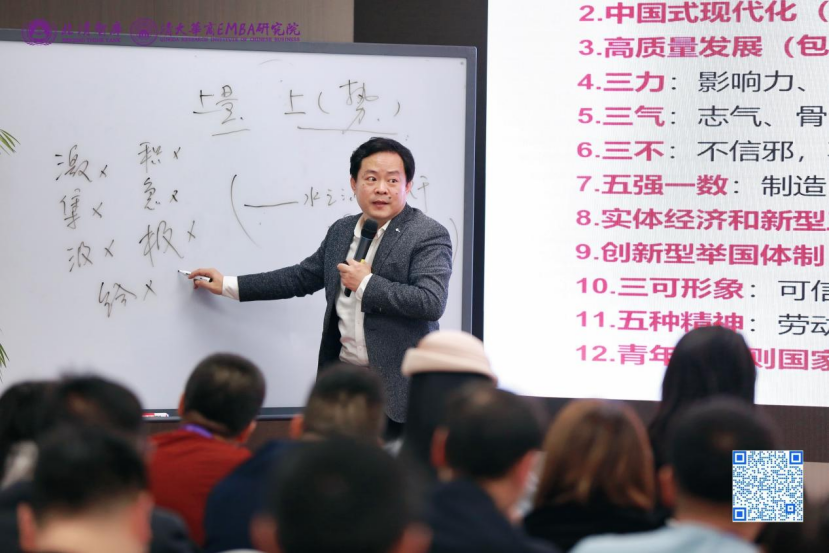 清大华言EMBA研究院
上量 上(势)
激× 积×
集× 急×
波× 极×
给×
(— 水之
2.中国式现代化(
3.高质量发展(包
4.三力：影响力、
5.三气：志气、骨
6.三不：不信邪，
7.五强一数：制造
8.实体经济和新型
9.创新型举国体制
10.三可形象：可信
11.五种精神：劳动
12.青年 则国家